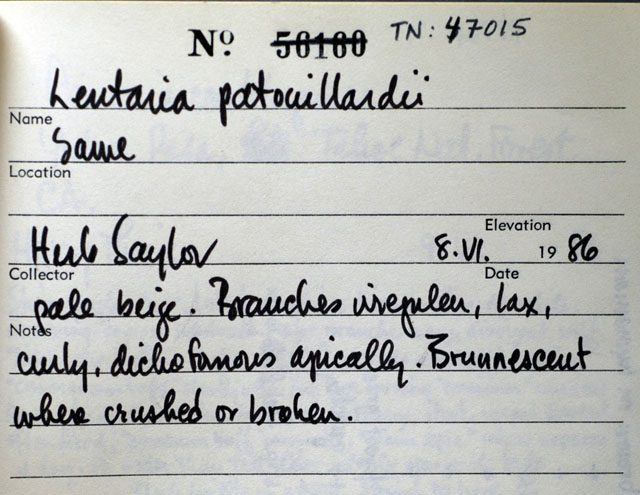 Nº 56160 TN: 47015
Lentaria patouillardii
Name
Same
Location
Elevation
Herb Saylor 8.VI. 19 86
Collector Date
pale beige. Branches irregular, lax,
Notes
curly, dichotomous apically. Brunnescent
where crushed or broken.